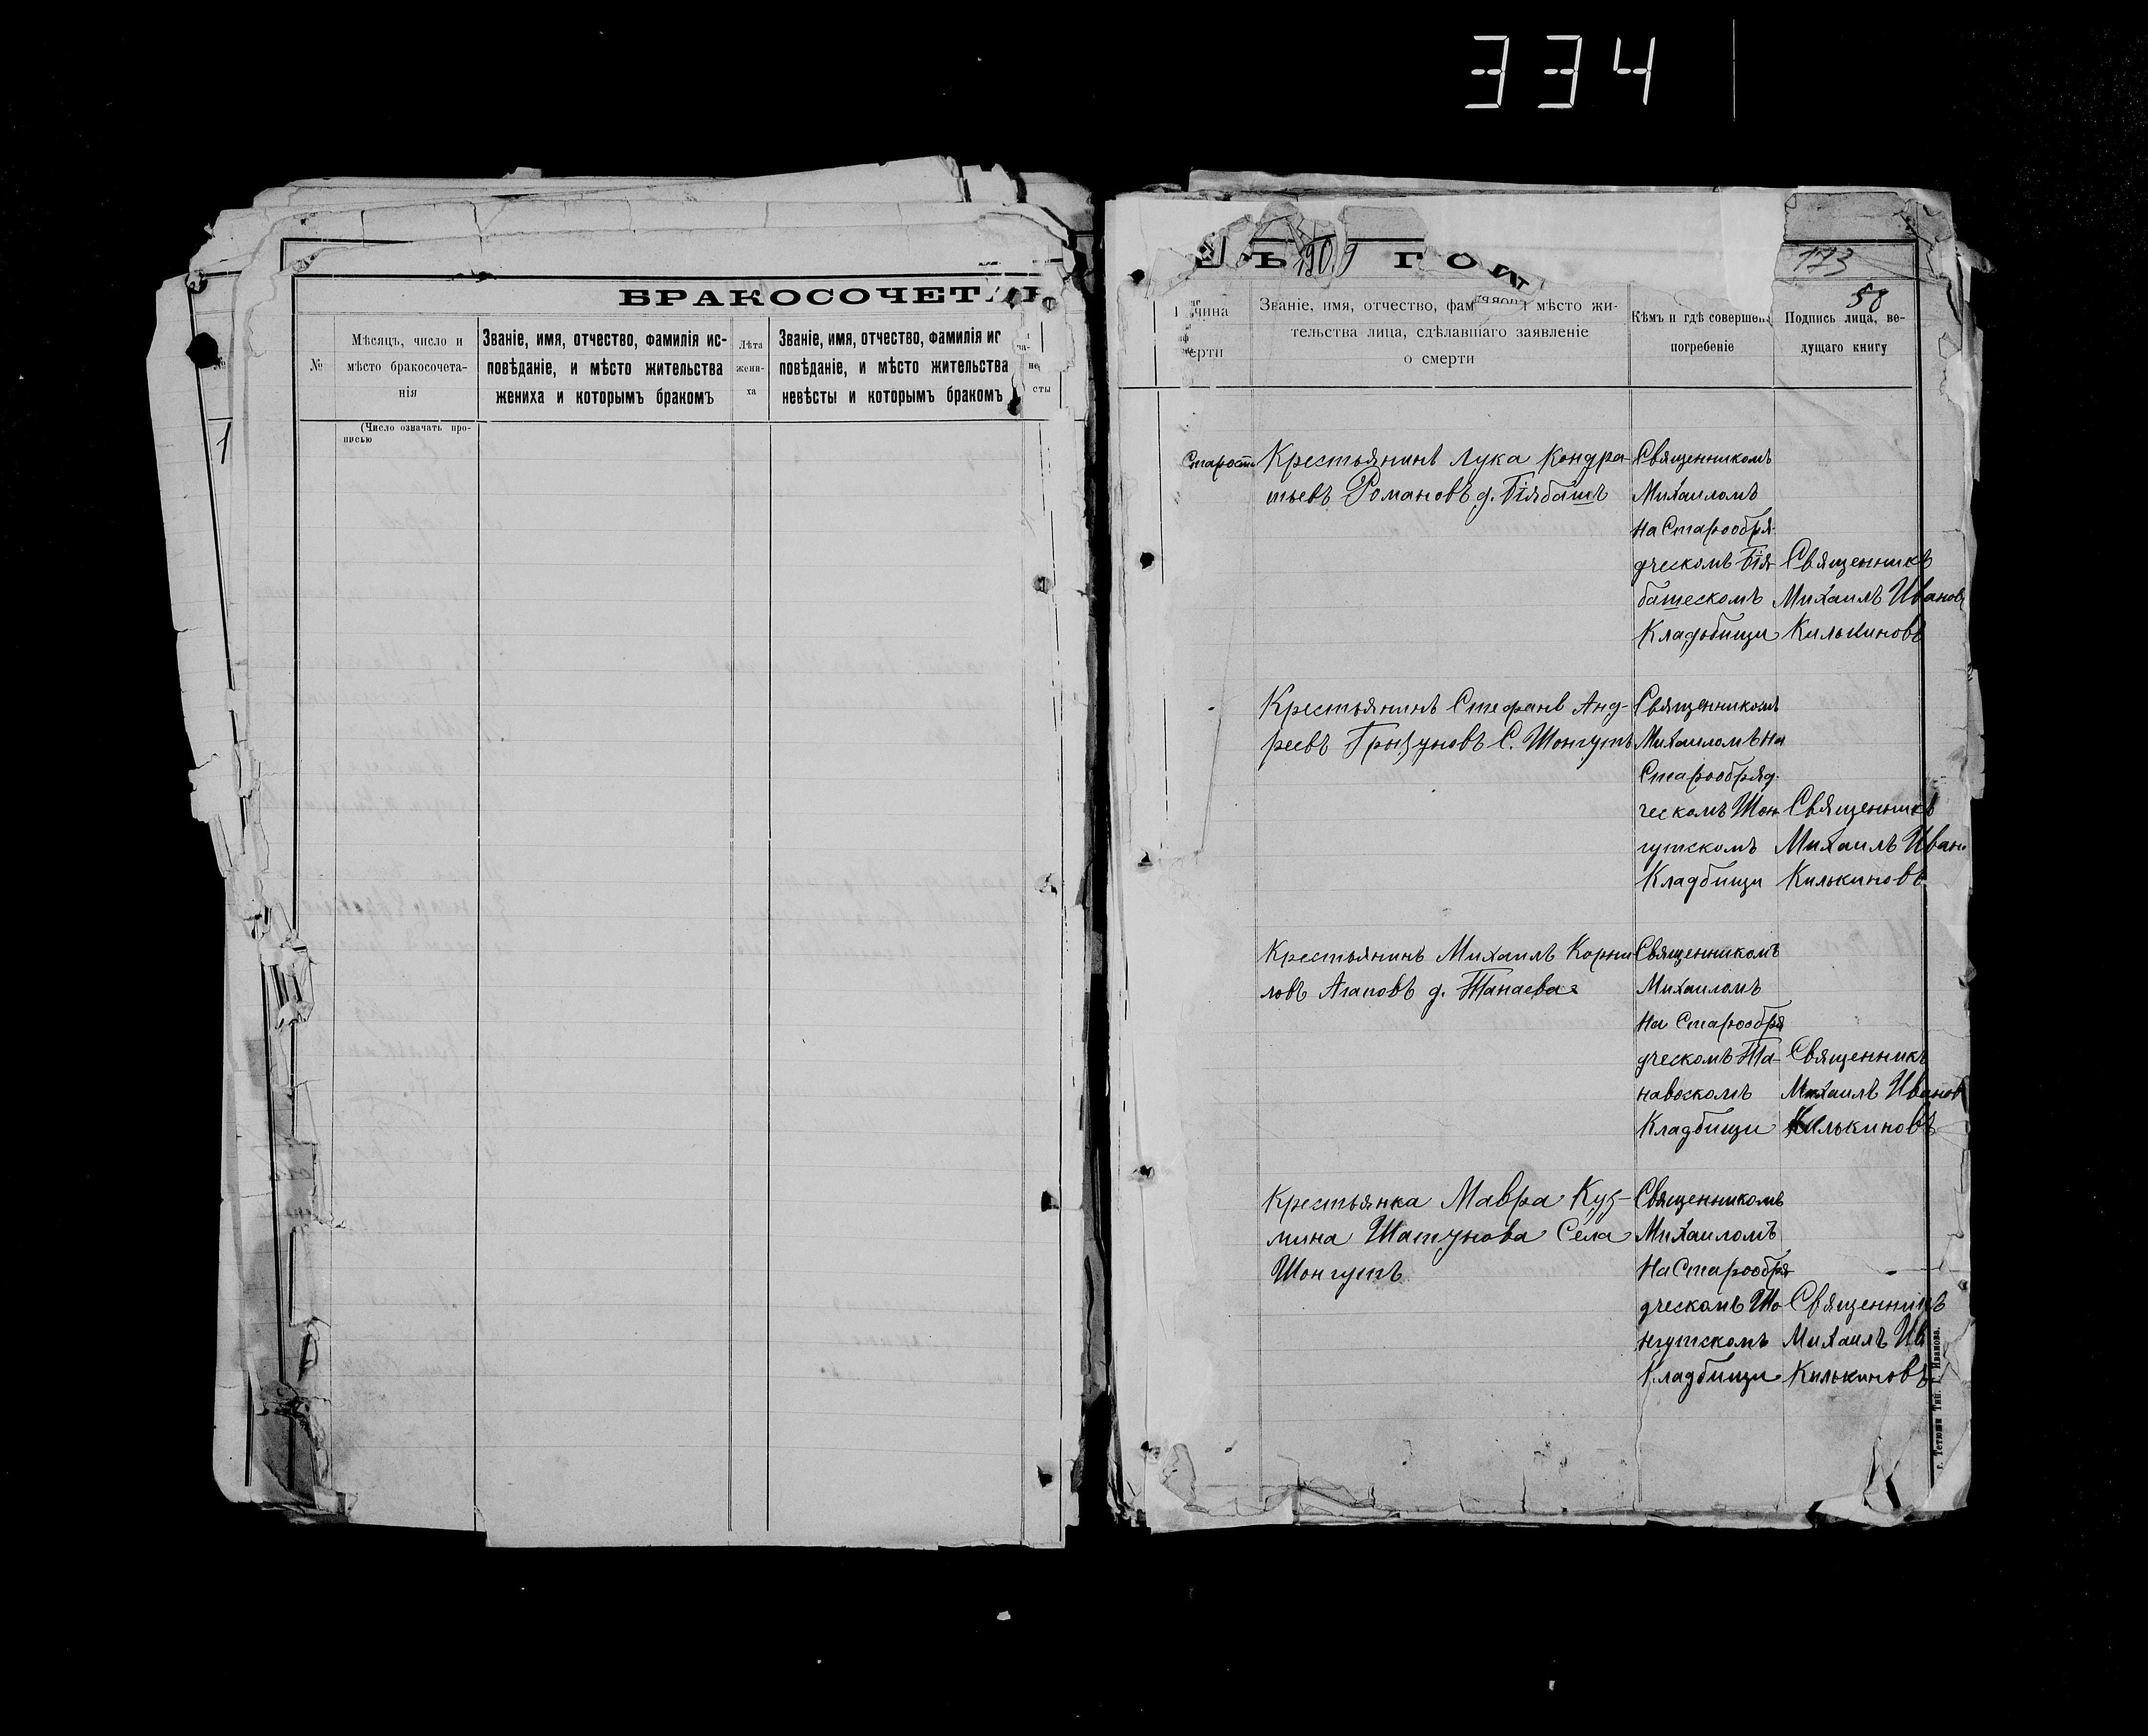 334
БРАКОСОЧЕТ
№
Мѣсяцъ, число и
мѣсто бракосочета-
нія
Званіе, имя, отчество, фамилія ис-
повѣданіе, и мѣсто жительства
жениха и которымъ бракомъ
Лѣта
жени-
ха
Званіе, имя, отчество, фамилія ис
повѣданіе, и мѣсто жительства
невѣсты и которымъ бракомъ
сты
(Число означать про-
писью
1
1909 ГОД
173
58
чина
ерти
Званіе, имя, отчество, фам мѣсто жи-
тельства лица, сдѣлавшаго заявленіе
о смерти
Кѣмъ и гдѣ совершен
погребеніе
Подпись лица, ве-
дущаго книгу
Старости
Крестьянинъ Лука Кондра-
тьевъ Романовъ д. Біябашъ
Священникомъ
Михаиломъ
на Старообря-
дческомъ Бія-
башескомъ
Кладьбищи
Священникъ
Михаилъ Иванов
Килькиновъ
Крестьянинъ Стефанъ Анд-
реевъ Грызуновъ С. Шонгутъ
Священникомъ
Михаиломъ на
Старообряд-
ческомъ Шон
гутскомъ
Кладбищи
Священникъ
Михаилъ Иван
Килькиновъ
Крестьянинъ Михаилъ Корни
ловъ Агаповъ д. Танаева
Священникомъ
Михаиломъ
на Старообря
дческомъ Та-
навоскомъ
Кладбищи
Священникъ
Михаилъ Иванов
Килькиновъ
Крестьянка Мавра Куз-
мина Шатунова Села
Шонгутъ
Священникомъ
Михаиломъ
На Старообря
дческомъ Шо
нгутскомъ
Кладбищи
Священникъ
Михаилъ Ив
Килькиновъ
г. Тетюши Тип. Иванова.